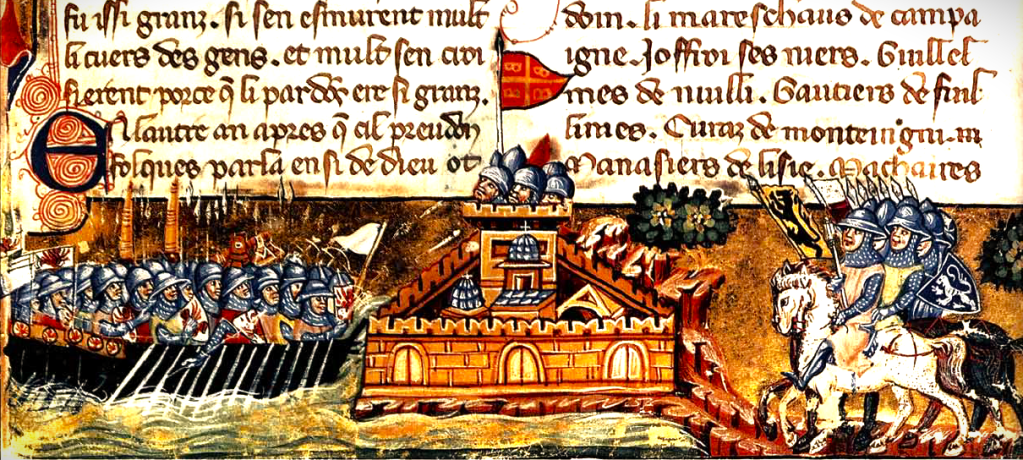 fu issi granz. si sen esmurent mult
li cuers des gens. et mult sen croi
sierent porce q̃ li pardõs ere si granz.
En lautre an apres q̃ cil preudom
folques parla ensi de dieu ot
doin. li mareschaus de campa
igne. Joffroi ses niers. Guillel
mes de nuilli. Gautiers de
Euraz de monteingni.
Manasiers de lisle. Machaires